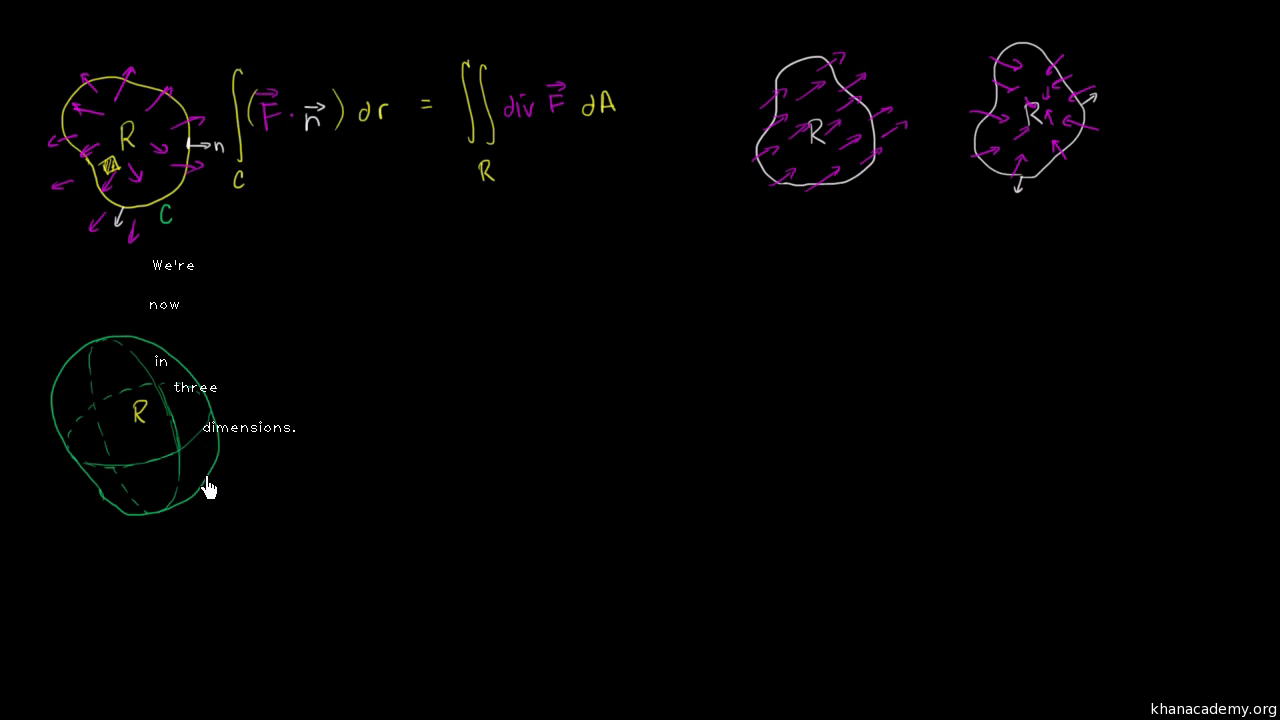 R
n
C
∫_C (F⃗ · n⃗) dr = ∬_R div F⃗ dA
R
R
We're
now
in
three
dimensions.
R
khanacademy.org